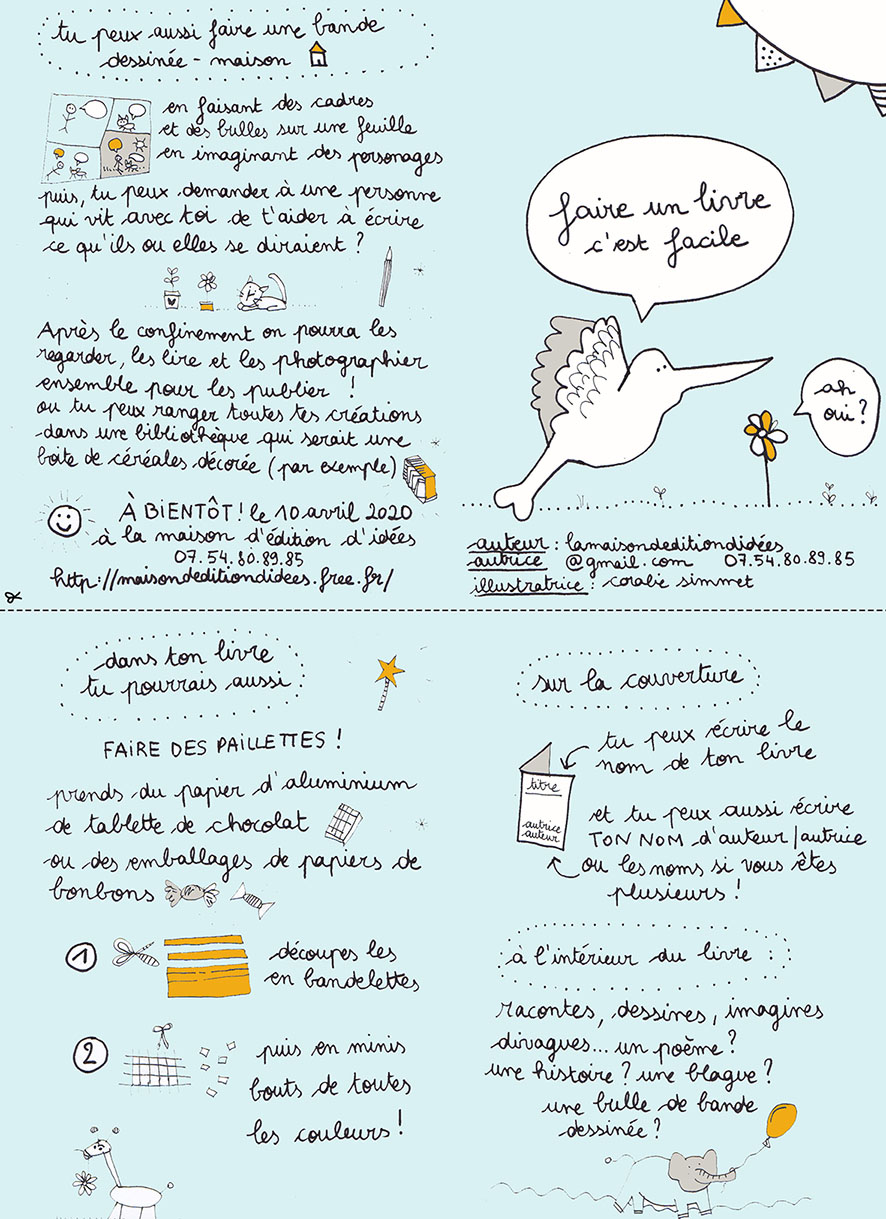 tu peux aussi faire une bande
dessinée - maison
en faisant des cadres
et des bulles sur une feuille
en imaginant des personages
puis, tu peux demander à une personne
qui vit avec toi de t'aider à écrire
ce qu'ils ou elles se diraient ?
Après le confinement on pourra les
regarder, les lire et les photographier
ensemble pour les publier !
ou tu peux ranger toutes tes créations
dans une bibliothèque qui serait une
boite de céréales décorée (par exemple)
À BIENTÔT ! le 10 avril 2020
à la maison d'édition d'idées
07.54.80.89.85
http://maisondeditiondidees.free.fr/
faire un livre
c'est facile
ah
oui ?
auteur : lamaisondeditiondidées
autrice @gmail.com 07.54.80.89.85
illustratrice : coralie simmet
dans ton livre
tu pourrais aussi
FAIRE DES PAILLETTES !
prends du papier d'aluminium
de tablette de chocolat
ou des emballages de papiers de
bonbons
1 découpes les
en bandelettes
2 puis en minis
bouts de toutes
les couleurs !
sur la couverture
tu peux écrire le
nom de ton livre
titre
autrice
auteur
et tu peux aussi écrire
TON NOM d'auteur/autrice
ou les noms si vous êtes
plusieurs !
à l'intérieur du livre :
racontes, dessines, imagines
divagues... un poème ?
une histoire ? une blague ?
une bulle de bande
dessinée ?